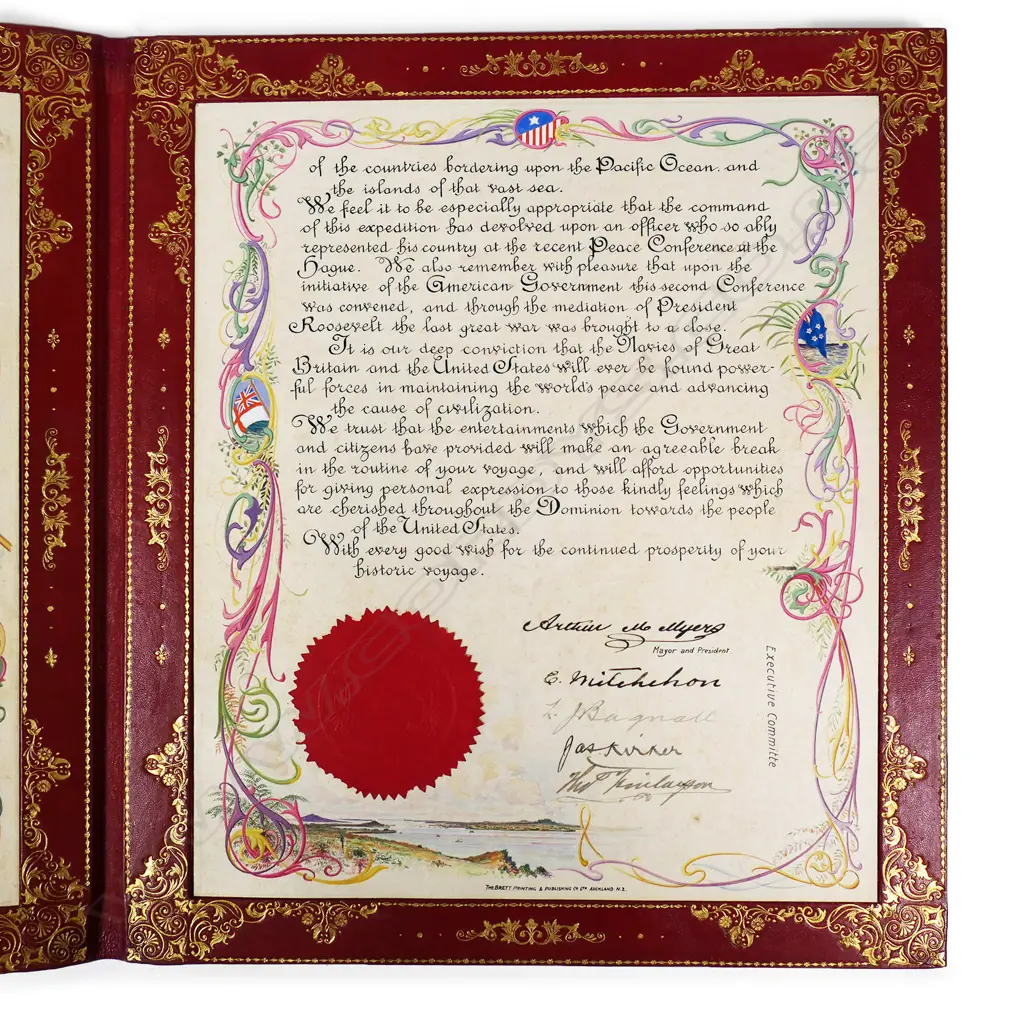 of the countries bordering upon the Pacific Ocean, and
the islands of that vast sea.
We feel it to be especially appropriate that the command
of this expedition has devolved upon an officer who so ably
represented his country at the recent Peace Conference at the
Hague. We also remember with pleasure that upon the
initiative of the American Government this second Conference
was convened, and through the mediation of President
Roosevelt the last great war was brought to a close.
It is our deep conviction that the Navies of Great
Britain and the United States will ever be found power-
ful forces in maintaining the world's peace and advancing
the cause of civilization.
We trust that the entertainments which the Government
and citizens have provided will make an agreeable break
in the routine of your voyage, and will afford opportunities
for giving personal expression to those kindly feelings which
are cherished throughout the Dominion towards the people
of the United States.
With every good wish for the continued prosperity of your
historic voyage.
Arthur M Myers
Mayor and President
E. Mitchelson
L. J Bagnall
Jas Kirker
Thos Finlayson
Executive Committe
THE BRETT PRINTING & PUBLISHING CO LTD AUCKLAND. N.Z.